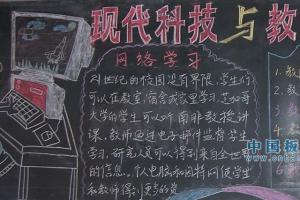 现代科技与教
网络学习
21世纪的校园没有界限，学生们
可以在教室，宿舍或家里学习，芝加哥
大学的学生可以听南非教授讲
课，教师通过电子邮件监督学生
学习，研究人员可以得到来自全世界
的信息。个人电脑和因特网使学生
和教师得到更多的资
1.教
2.教
3.
中国板